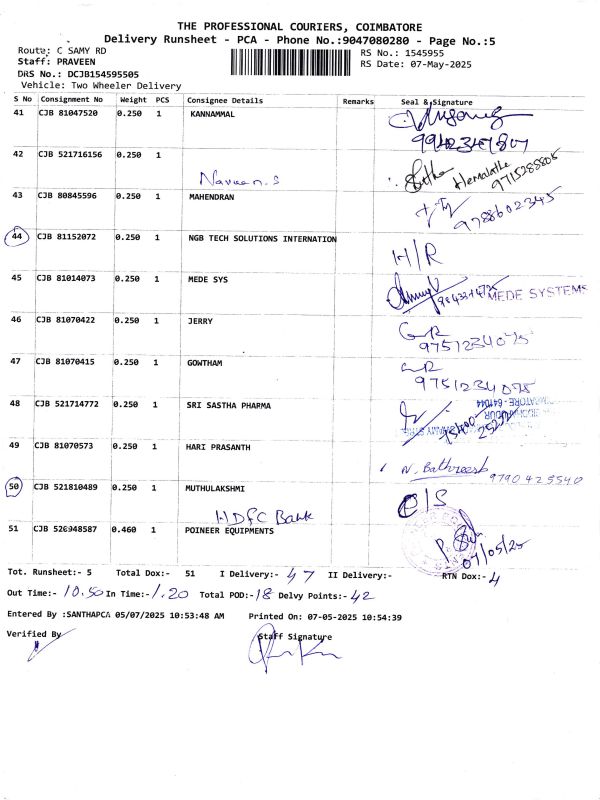 THE PROFESSIONAL COURIERS, COIMBATORE
Delivery Runsheet - PCA - Phone No.:9047080280 - Page No.:5
Route: C SAMY RD
Staff: PRAVEEN
DRS No.: DCJB154595505
Vehicle: Two Wheeler Delivery
RS No.: 1545955
RS Date: 07-May-2025
S No Consignment No Weight PCS Consignee Details Remarks Seal & Signature
41 CJB 81047520 0.250 1 KANNAMMAL
42 CJB 521716156 0.250 1
Naveen.S Hemalatha 9715288805
43 CJB 80845596 0.250 1 MAHENDRAN
9788602345
44 CJB 81152072 0.250 1 NGB TECH SOLUTIONS INTERNATION
H/R
45 CJB 81014073 0.250 1 MEDE SYS
MEDE SYSTEMS
46 CJB 81070422 0.250 1 JERRY
9751234075
47 CJB 81070415 0.250 1 GOWTHAM
9751234075
48 CJB 521714772 0.250 1 SRI SASTHA PHARMA
49 CJB 81070573 0.250 1 HARI PRASANTH
N. Bathreesh 9790425540
50 CJB 521810489 0.250 1 MUTHULAKSHMI
HDFC Bank
51 CJB 526948587 0.460 1 POINEER EQUIPMENTS
07/05/25
Tot. Runsheet:- 5 Total Dox:- 51 I Delivery:- 47 II Delivery:- RTN Dox:- 4
Out Time:- 10.50 In Time:- 1.20 Total POD:- 18 Delvy Points:- 42
Entered By :SANTHAPCA 05/07/2025 10:53:48 AM Printed On: 07-05-2025 10:54:39
Verified By
Staff Signature